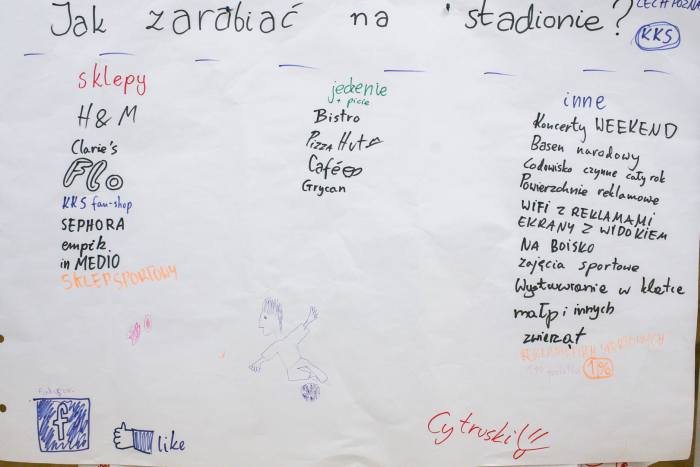 Jak zarabiać na stadionie?
LECH POZNA
KKS
sklepy
H & M
Clarie's
Flo
KKS fan-shop
SEPHORA
empik
in MEDIO
SKLEP SPORTOWY
jedzenie
+ picie
Bistro
PIZZA Hut
Café
Grycan
inne
Koncerty WEEKEND
Basen narodowy
Lodowisko czynne cały rok
Powierzchnie reklamowe
WIFI Z REKLAMAMI
EKRANY Z WIDOKIEM
NA BOISKO
zajęcia sportowe
Wystawianie w klatce
małp i innych
zwierząt
1%
f
like
Cytruski!!